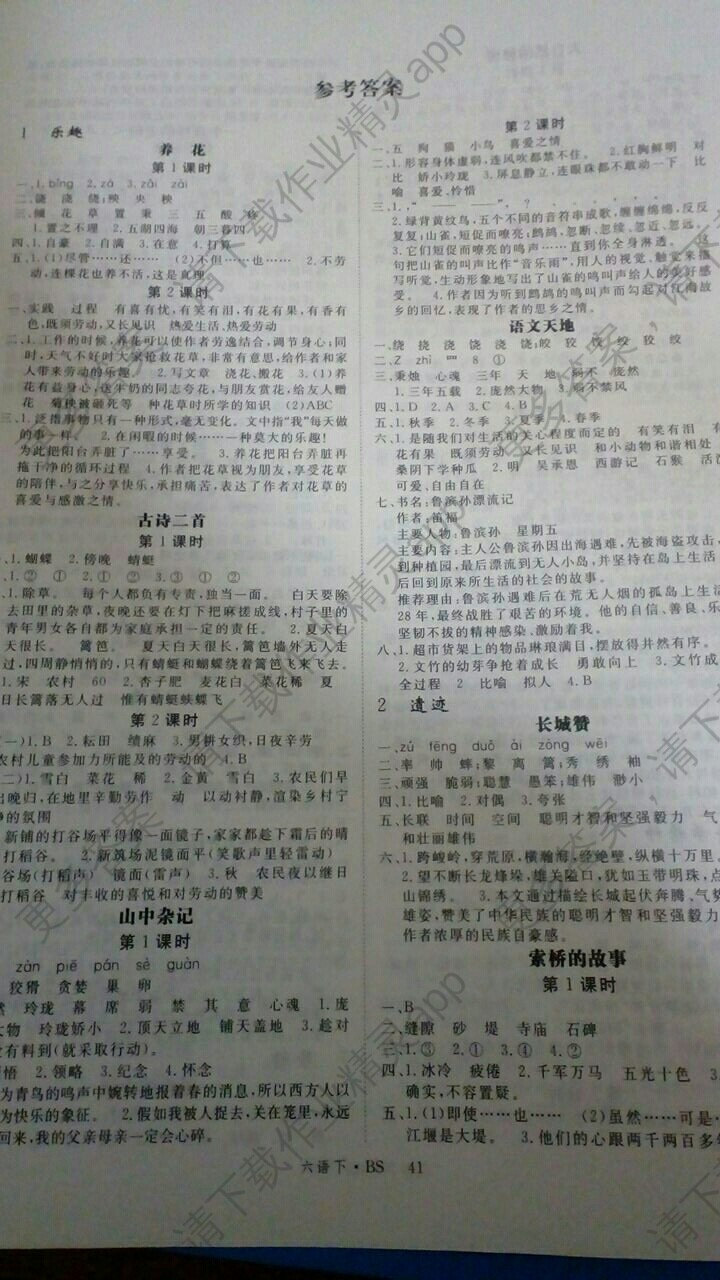 参考答案
1 乐趣
养花
第1课时
一、1.bīng 2.zá 3.zǎi zài
二、浇 浇 浇;殃 央 秧
三、倾 花 草 置 秉 三 五 酸
1.置之不理 2.五湖四海 朝三暮四
四、1.自豪 2.自满 3.在意 4.打算
五、1.(1)尽管……还…… (2)不但……也…… 2.不劳
动,连棵花也养不活,这是真理
第2课时
一、实践 过程 有喜有忧,有笑有泪,有花有果,有香有
色,既须劳动,又长见识 热爱生活、热爱劳动
二、1.工作的时候,养花可以使作者劳逸结合,调节身心;同
时,天气不好时大家抢救花草,非常有意思,给作者和家
人带来劳动的乐趣。 2.写文章 浇花、搬花 3.(1)养
花有益身心,送牛奶的同志夸花,与朋友赏花,给友人赠
花 菊秧被砸死等 种花草时所学的知识 (2)ABC
三、1.泛指事物只有一种形式,毫无变化。文中指“我”每天做
的事一样 2.在闲暇的时候……一种莫大的乐趣!
为此把阳台弄脏了……享受。 3.养花把阳台弄脏再
拖干净的循环过程 4.作者把花草视为朋友,享受花草
的陪伴,与之分享快乐,承担痛苦,表达了作者对花草的
喜爱与感激之情。
古诗二首
第1课时
、1.蝴蝶 2.傍晚 蜻蜓
1.② ① 2.① ② 3.③ ① ②
1.除草。 每个人都负有专责,独当一面。 白天要除
去田里的杂草,夜晚还要在灯下把麻搓成线,村子里的
青年男女各自都为家庭承担一定的责任。 2.夏天白
天很长。 篱笆。 夏天白天很长,篱笆墙外无人走
过,四周静悄悄的,只有蜻蜓和蝴蝶绕着篱笆飞来飞去。
1.宋 农村 60 2.杏子肥 麦花白 菜花稀 夏
日长篱落无人过 惟有蜻蜓蛱蝶飞
第2课时
(一)1.B 2.耘田 绩麻 3.男耕女织,日夜辛劳
农村儿童参加力所能及的劳动的 4.B
(二)1.雪白 菜花 稀 2.金黄 雪白 3.农民们早
出晚归,在地里辛勤劳作 动 以动衬静,渲染乡村宁
静的氛围
新铺的打谷场平得像一面镜子,家家都趁下霜后的晴
打稻谷。 2.新筑场泥镜面平(笑歌声里轻雷动)
谷场(打稻声) 镜面(雷声) 3.秋 农民夜以继日
打稻谷 对丰收的喜悦和对劳动的赞美
山中杂记
第1课时
zàn piě pán sè guàn
狡猾 贪婪 巢 卵
玲珑 幕 席 弱 禁 其 意 心魂 1.庞
大物 玲珑娇小 2.顶天立地 铺天盖地 3.趁对
有料到(就采取行动)。
悟 2.领略 3.纪念 4.怀念
为青鸟的鸣声中婉转地报着春的消息,所以西方人以
为快乐的象征。 2.假如我被人捉去,关在笼里,永远
回来,我的父亲母亲一定会心碎。
第2课时
一、五 狗 猫 小鸟 喜爱之情
二、1.形容身体虚弱,连风吹都禁不住。 2.红胸鲜明 对
比 娇小玲珑 3.屏息静立,连眼珠都不敢动一下 比
喻 喜爱、怜惜
三、1.
2.绿背黄纹鸟,五个不同的音符串成歌,缠缠绵绵,反反
复复;山雀,短促而嘹亮;鹧鸪,忽断、忽续、忽近、忽远。
3.它们短促而嘹亮的鸣声……直到你全身淋透。 这
句把山雀的叫声比作“音乐雨”,用人的视觉、触觉来描
写听觉,生动形象地写出了山雀的鸣叫声给人的美好感
受。 4.作者因为听到鹧鸪的鸣叫声而勾起对江南故
乡的回忆,表现了作者的思乡之情。
语文天地
一、绕 浇 浇 浇 浇 浇;皎 狡 饺 绞 狡 绞
二、Z zhì 罒 8 ①
三、秉烛 心魂 三年 天 地 祸不 庞然
1.三年五载 2.庞然大物 3.弱不禁风
四、1.D 2.A 3.C 4.B
五、1.秋季 2.冬季 3.夏季 4.春季
六、1.是随我们对生活的关心程度而定的 有笑有泪 有
花有果 既须劳动 又长见识 和小动物和谐相处
桑阴下学种瓜 2.明 吴承恩 西游记 石猴 活泼
可爱、自由自在
七、书名:鲁滨孙漂流记
作者:笛福
主要人物:鲁滨孙 星期五
主要内容:主人公鲁滨孙因出海遇难,先被海盗攻击,
到种植园,最后漂流到无人小岛,并坚持在岛上生活
后回到原来所生活的社会的故事。
推荐理由:鲁滨孙遇难后在荒无人烟的孤岛上生活
28年,最终战胜了艰苦的环境。他的自信、善良、乐
坚韧不拔的精神感染、激励着我。
八、1.超市货架上的物品琳琅满目,摆放得井然有序。
2.文竹的幼芽争抢着成长 勇敢向上 3.文竹成
全过程 2 比喻 拟人 4.B
2 遗迹
长城赞
一、zú fēng duǒ ài zòng wēi
二、率 帅 蟀;黎 离 篱;秀 绣 袖
三、顽强 脆弱;聪慧 愚笨;雄伟 渺小
四、1.比喻 2.对偶 3.夸张
五、长联 时间 空间 聪明才智和坚强毅力 气
和壮丽雄伟
六、1.跨峻岭,穿荒原,横瀚海,经绝壁,纵横十万里。
2.望不断长龙烽垛,雄关隘口,犹如玉带明珠,点
山锦绣。 3.本文通过描绘长城起伏奔腾、气势
雄姿,赞美了中华民族的聪明才智和坚强毅力
作者浓厚的民族自豪感。
索桥的故事
第1课时
一、B
二、缝隙 砂 堤 寺庙 石碑
三、1.③ 2.① 3.④ 4.②
四、1.冰冷 疲倦 2.千军万马 五光十色 3.
确实,不容置疑。
五、1.(1)即使……也…… (2)虽然……可是
江堰是大堤。 3.他们的心跟两千两百多
六语下·BS 41
请下载作业精灵app
更多答案,请下载作业精灵app
更多答案,请下